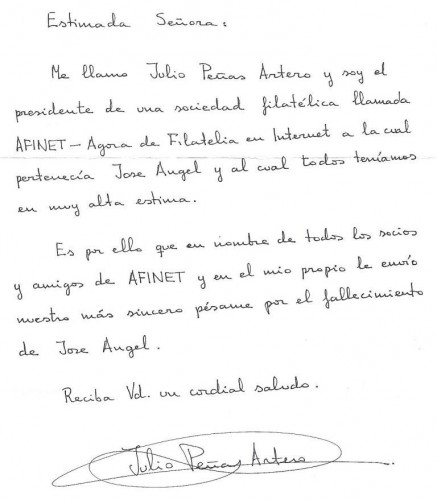 Estimada Señora:
Me llamo Julio Peñas Artero y soy el
presidente de una sociedad filatélica llamada
AFINET - Agora de Filatelia en Internet a la cual
pertenecía Jose Angel y al cual todos teníamos
en muy alta estima.
Es por ello que en nombre de todos los socios
y amigos de AFINET y en el mio propio le envío
nuestro más sincero pésame por el fallecimiento
de Jose Angel.
Reciba Vd. un cordial saludo.
Julio Peñas Artero